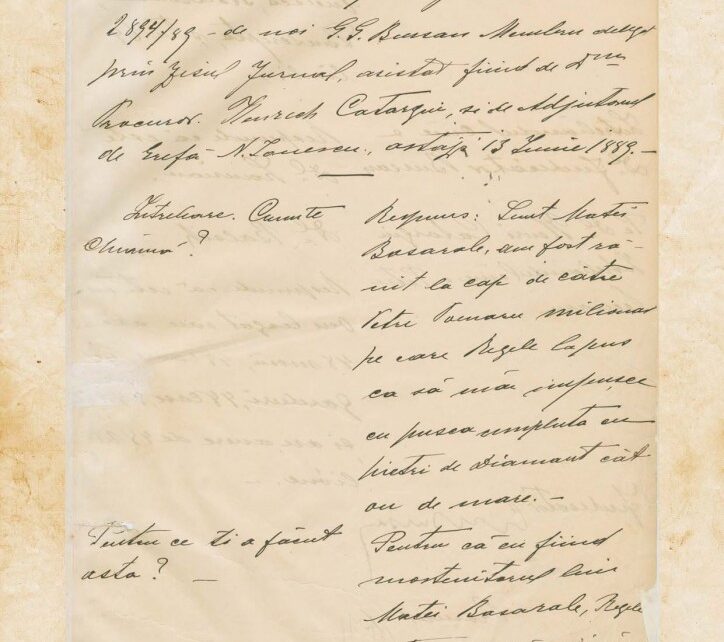 2894/89 - de noi G.G. Bursan Membru delegat
prin zisul Jurnal, asistat fiind de Dnu
Procuror. Henrich Catargiu, si de Adjutorul
de Grefă N. Ionescu, astăzi 13 Iunie 1889. -
Intrebare. Cum te
chiamă?
Respuns: Sunt Matei
Basarab, am fost ră-
nit la cap de către
Petre milionar
pe care Regele l'a pus
ca să mă impusce
cu pusca umpluta cu
pietri de Diamant cât
ou de mare. -
Pentru ce ti a făcut
asta? -
Pentru că eu fiind
mostenitorul lui
Matei Basarab, Regele